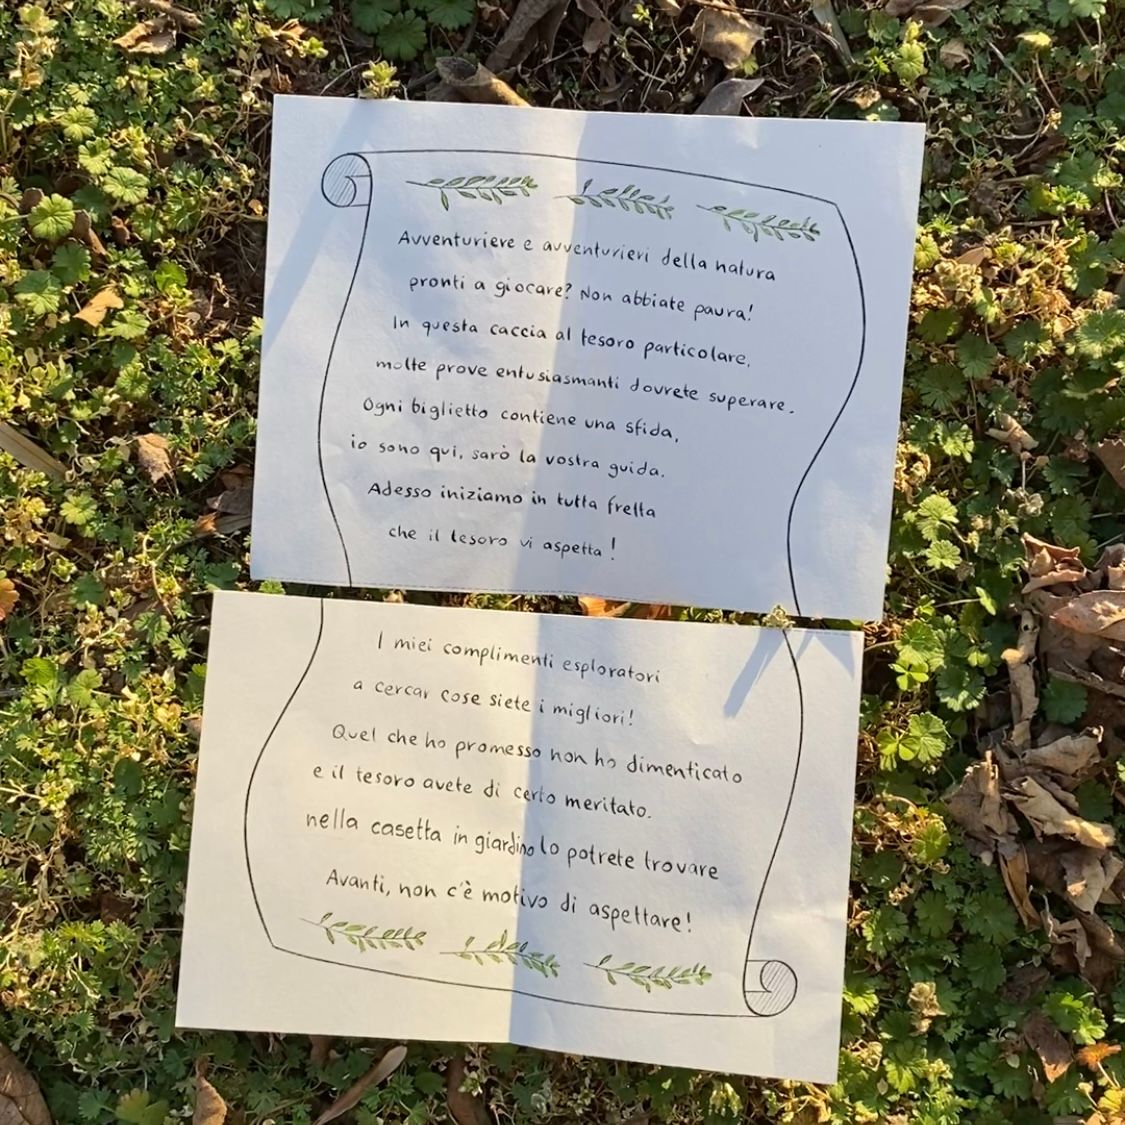 Avventuriere e avventurieri della natura
pronti a giocare? Non abbiate paura!
In questa caccia al tesoro particolare,
molte prove entusiasmanti dovrete superare.
Ogni biglietto contiene una sfida,
io sono qui, sarò la vostra guida.
Adesso iniziamo in tutta fretta
che il tesoro vi aspetta!
I miei complimenti esploratori
a cercar cose siete i migliori!
Quel che ho promesso non ho dimenticato
e il tesoro avete di certo meritato.
nella casetta in giardino lo potrete trovare
Avanti, non c'è motivo di aspettare!